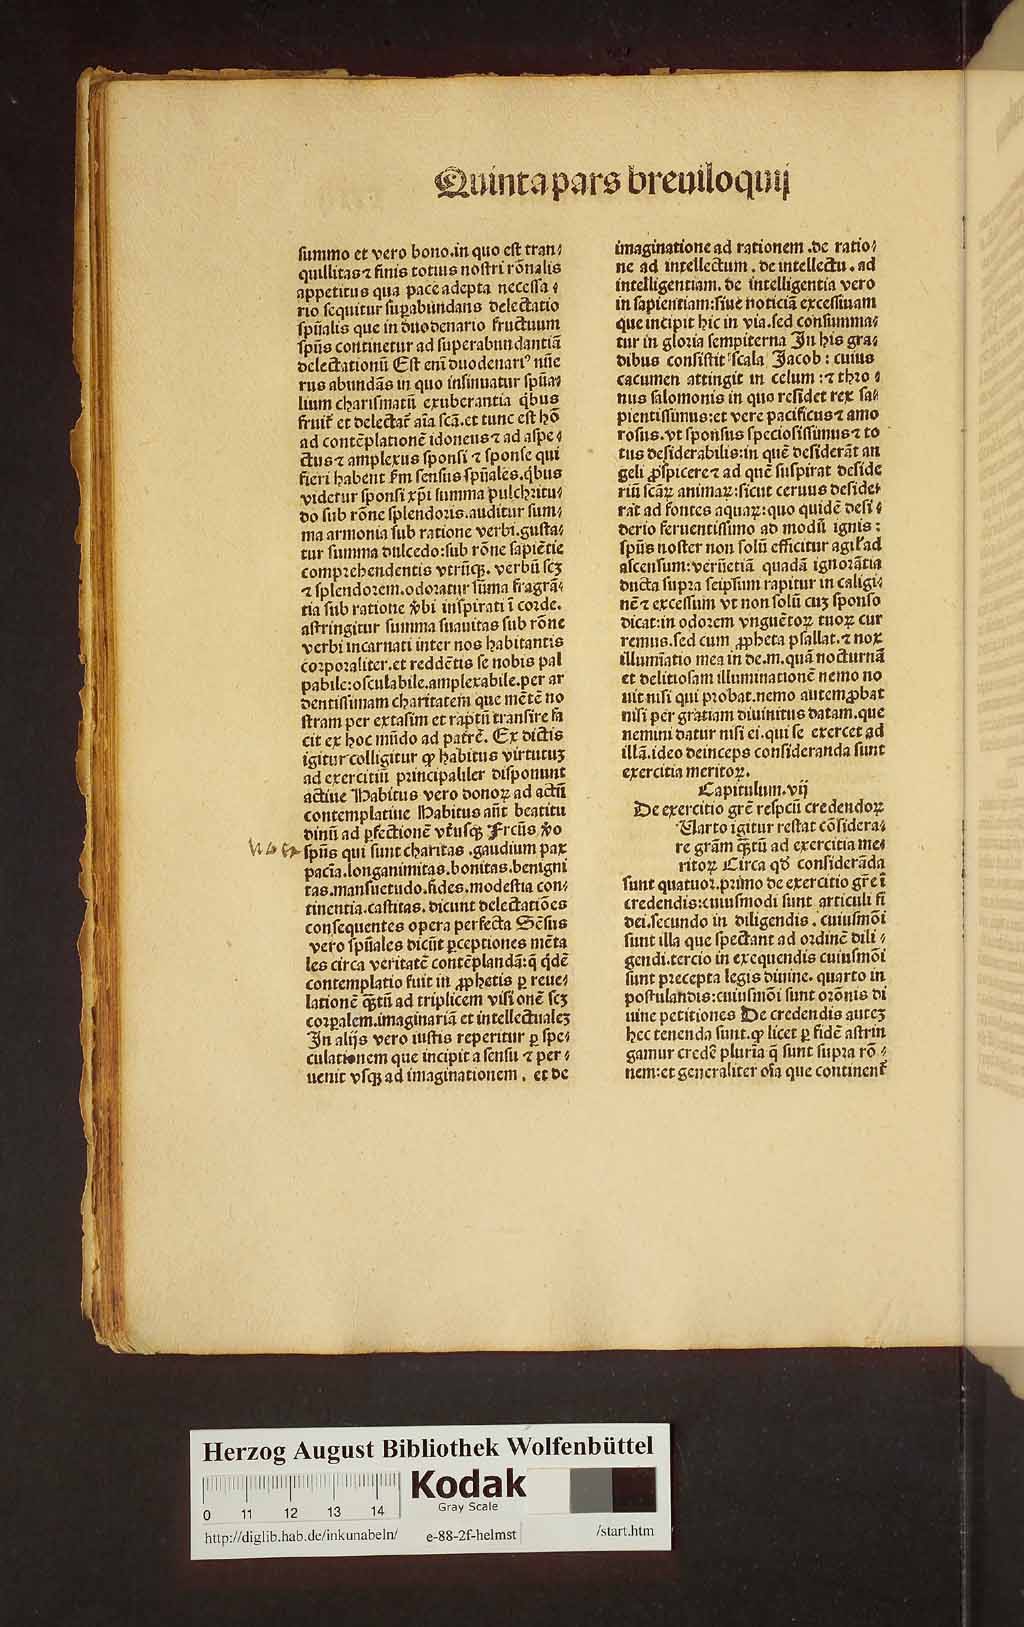 Quinta pars breuiloquij
summo et vero bono.in quo est tran⸗
quillitas ⁊ finis totius nostri rōnalis
appetitus qua pace adepta necessa⸗
rio sequitur suꝑabundans delectatio
spūalis que in duodenario fructuum
spūs continetur ad superabundantiā
delectationū Est enī duodenariꝰ nūe
rus abundās in quo insinuatur spūa⸗
lium charismatū exuberantia q̇bus
fruit᷑ et delectat᷑ aīa scā.et tunc est hō
ad contēplationē idoneus ⁊ ad aspe⸗
ctus ⁊ amplexus sponsi ⁊ sponse qui
fieri habent ẜm sensus spūales.q̇bus
videtur sponsi xp̄i summa pulchritu⸗
do sub rōne splendoris.auditur sum⸗
ma armonia sub ratione verbi.gusta⸗
tur summa dulcedo:sub rōne sapiētie
comprehendentis vtrūqꝫ. verbū scꝫ
⁊ splendorem.odoratur sūma fragrā⸗
tia sub ratione v̓bi inspirati ī corde.
astringitur summa suauitas sub rōne
verbi incarnati inter nos habitantis
corporaliter.et reddētis se nobis pal
pabile:osculabile.amplexabile.per ar
dentissimam charitatem̄ que mētē no
stram per extasim et raptū transire fa
cit ex hoc mūdo ad patrē. Ex dictis
igitur colligitur ꝙ habitus virtutuꝫ
ad exercitiū principaliler disponunt
actiue Habitus vero donoꝝ ad actū
contemplatiue Habitus aūt beatitu
dinū ad ꝑfectionē vt̓usqꝫ Frcūs v̓o
spūs qui sunt charitas .gaudium pax
pacīa.longanimitas.bonitas.benigni
tas.mansuetudo.fides.modestia con⸗
tinentia.castitas. dicunt delectatiōes
consequentes opera perfecta Sēsus
vero spūales dicūt ꝑceptiones mēta
les circa veritatē contēplandā:q̄ q̇dē
contemplatio fuit in ꝓphetis ꝑ reue⸗
lationē q̄ꝫtū ad triplicem visionē scꝫ
corpalem.imaginariā et intellectualeꝫ
In alijs vero iustis reperitur ꝑ spe⸗
culationem que incipit a sensu ⁊ per⸗
uenit vsqꝫ ad imaginationem . et de
imaginatione ad rationem .de ratio⸗
ne ad intellectum. de intellectu. ad
intelligentiam. de intelligentia vero
in sapientiam:siue noticiā excessiuam
que incipit hic in via.sed consumma⸗
tur in gloria sempiterna In his gra⸗
dibus consistit scala Jacob: cuius
cacumen attingit in celum:⁊ thro⸗
nus salomonis in quo residet rex sa⸗
pientissimus:et vere pacificus ⁊ amo
rosus.vt sponsus speciosissimus ⁊ to
tus desiderabilis:in quē desiderāt an
geli ꝓspicere ⁊ ad quē suspirat deside
riū scāꝝ animaꝝ:sicut ceruus deside⸗
rat ad fontes aquaꝝ:quo quidē desi⸗
derio feruentissimo ad modū ignis:
spūs noster non solū efficitur agil̓ ad
ascensum:verūetiā quadā ignorātia
ducta supra seipsum rapitur in caligi⸗
nē ⁊ excessum vt non solū cuꝫ sponso
dicat:in odorem vnguētoꝝ tuoꝝ cur
remus.sed cum ꝓpheta psallat.⁊ nox
illumīatio mea in de.m.quā nocturnā
et delitiosam illuminationē nemo no
uit nisi qui probat.nemo autem ꝓbat
nisi per gratiam diuinitus datam.que
nemini datur nisi ei.qui se exercet ad
illā.ideo deinceps consideranda sunt
exercitia meritoꝝ.
Capitulum.vij
De exercitio gr̄e respcū credendoꝝ
Uarto igitur restat cōsidera⸗
re grām q̄ꝫtū ad exercitia me⸗
ritoꝝ Circa qd̄ considerāda
sunt quatuor.primo de exercitio gr̄e ī
credendis:cuiusmodi sunt articuli fi
dei.secundo in diligendis. cuiusmōi
sunt illa que spectant ad ordinē dili⸗
gendi.tercio in exequendis cuiusmōi
sunt precepta legis diuine. quarto in
postulandis:cuiusmōi sunt orōnis di
uine petitiones De credendis auteꝫ
hec tenenda sunt.ꝙ licet ꝑ fidē astrin
gamur credē pluria q̄ sunt supra rō⸗
nem:et generaliter oīa que continent᷑
Herzog August Bibliothek Wolfenbüttel
Kodak
Gray Scale
0 11 12 13 14
http://diglib.hab.de/inkunabeln/ e-88-2f-helmst /start.htm